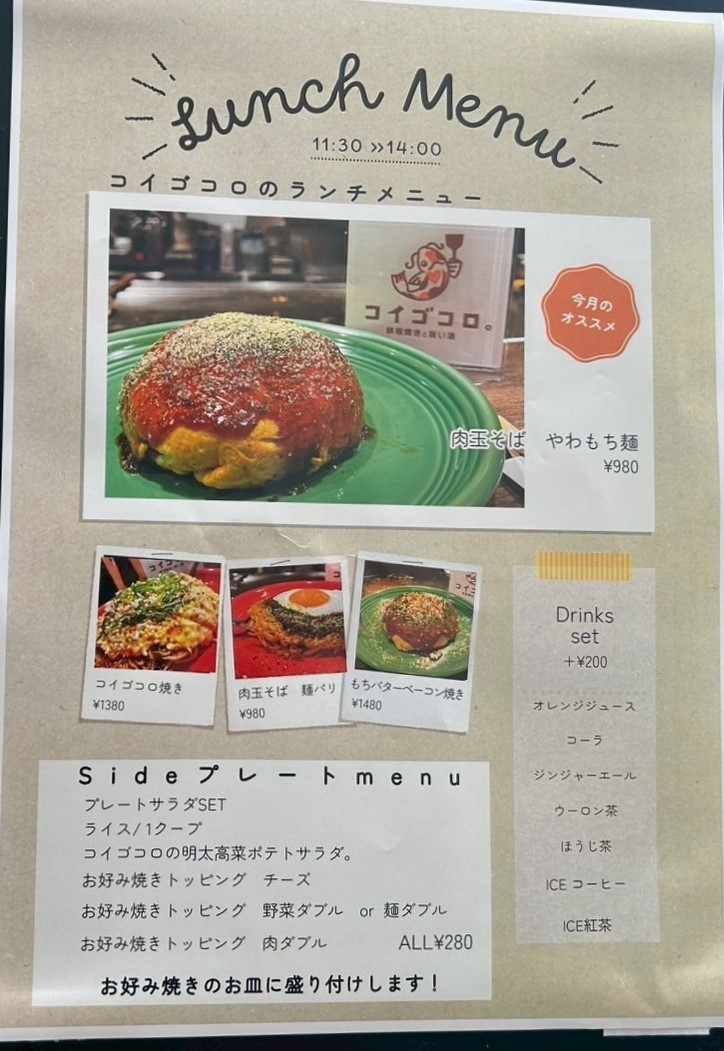 Lunch Menu
11:30 »14:00
コイゴコロのランチメニュー
コイゴコロ。
鉄板焼きと旨い酒
今月の
オススメ
肉玉そば　やわもち麺
¥980
コイゴコロ焼き
¥1380
肉玉そば　麺パリ
¥980
もちバターベーコン焼き
¥1480
Drinks
set
+¥200
オレンジジュース
コーラ
ジンジャーエール
ウーロン茶
ほうじ茶
ICE コーヒー
ICE紅茶
Sideプレートmenu
プレートサラダSET
ライス/1クープ
コイゴコロの明太高菜ポテトサラダ。
お好み焼きトッピング　チーズ
お好み焼きトッピング　野菜ダブル　or 麺ダブル
お好み焼きトッピング　肉ダブル　ALL¥280
お好み焼きのお皿に盛り付けします！